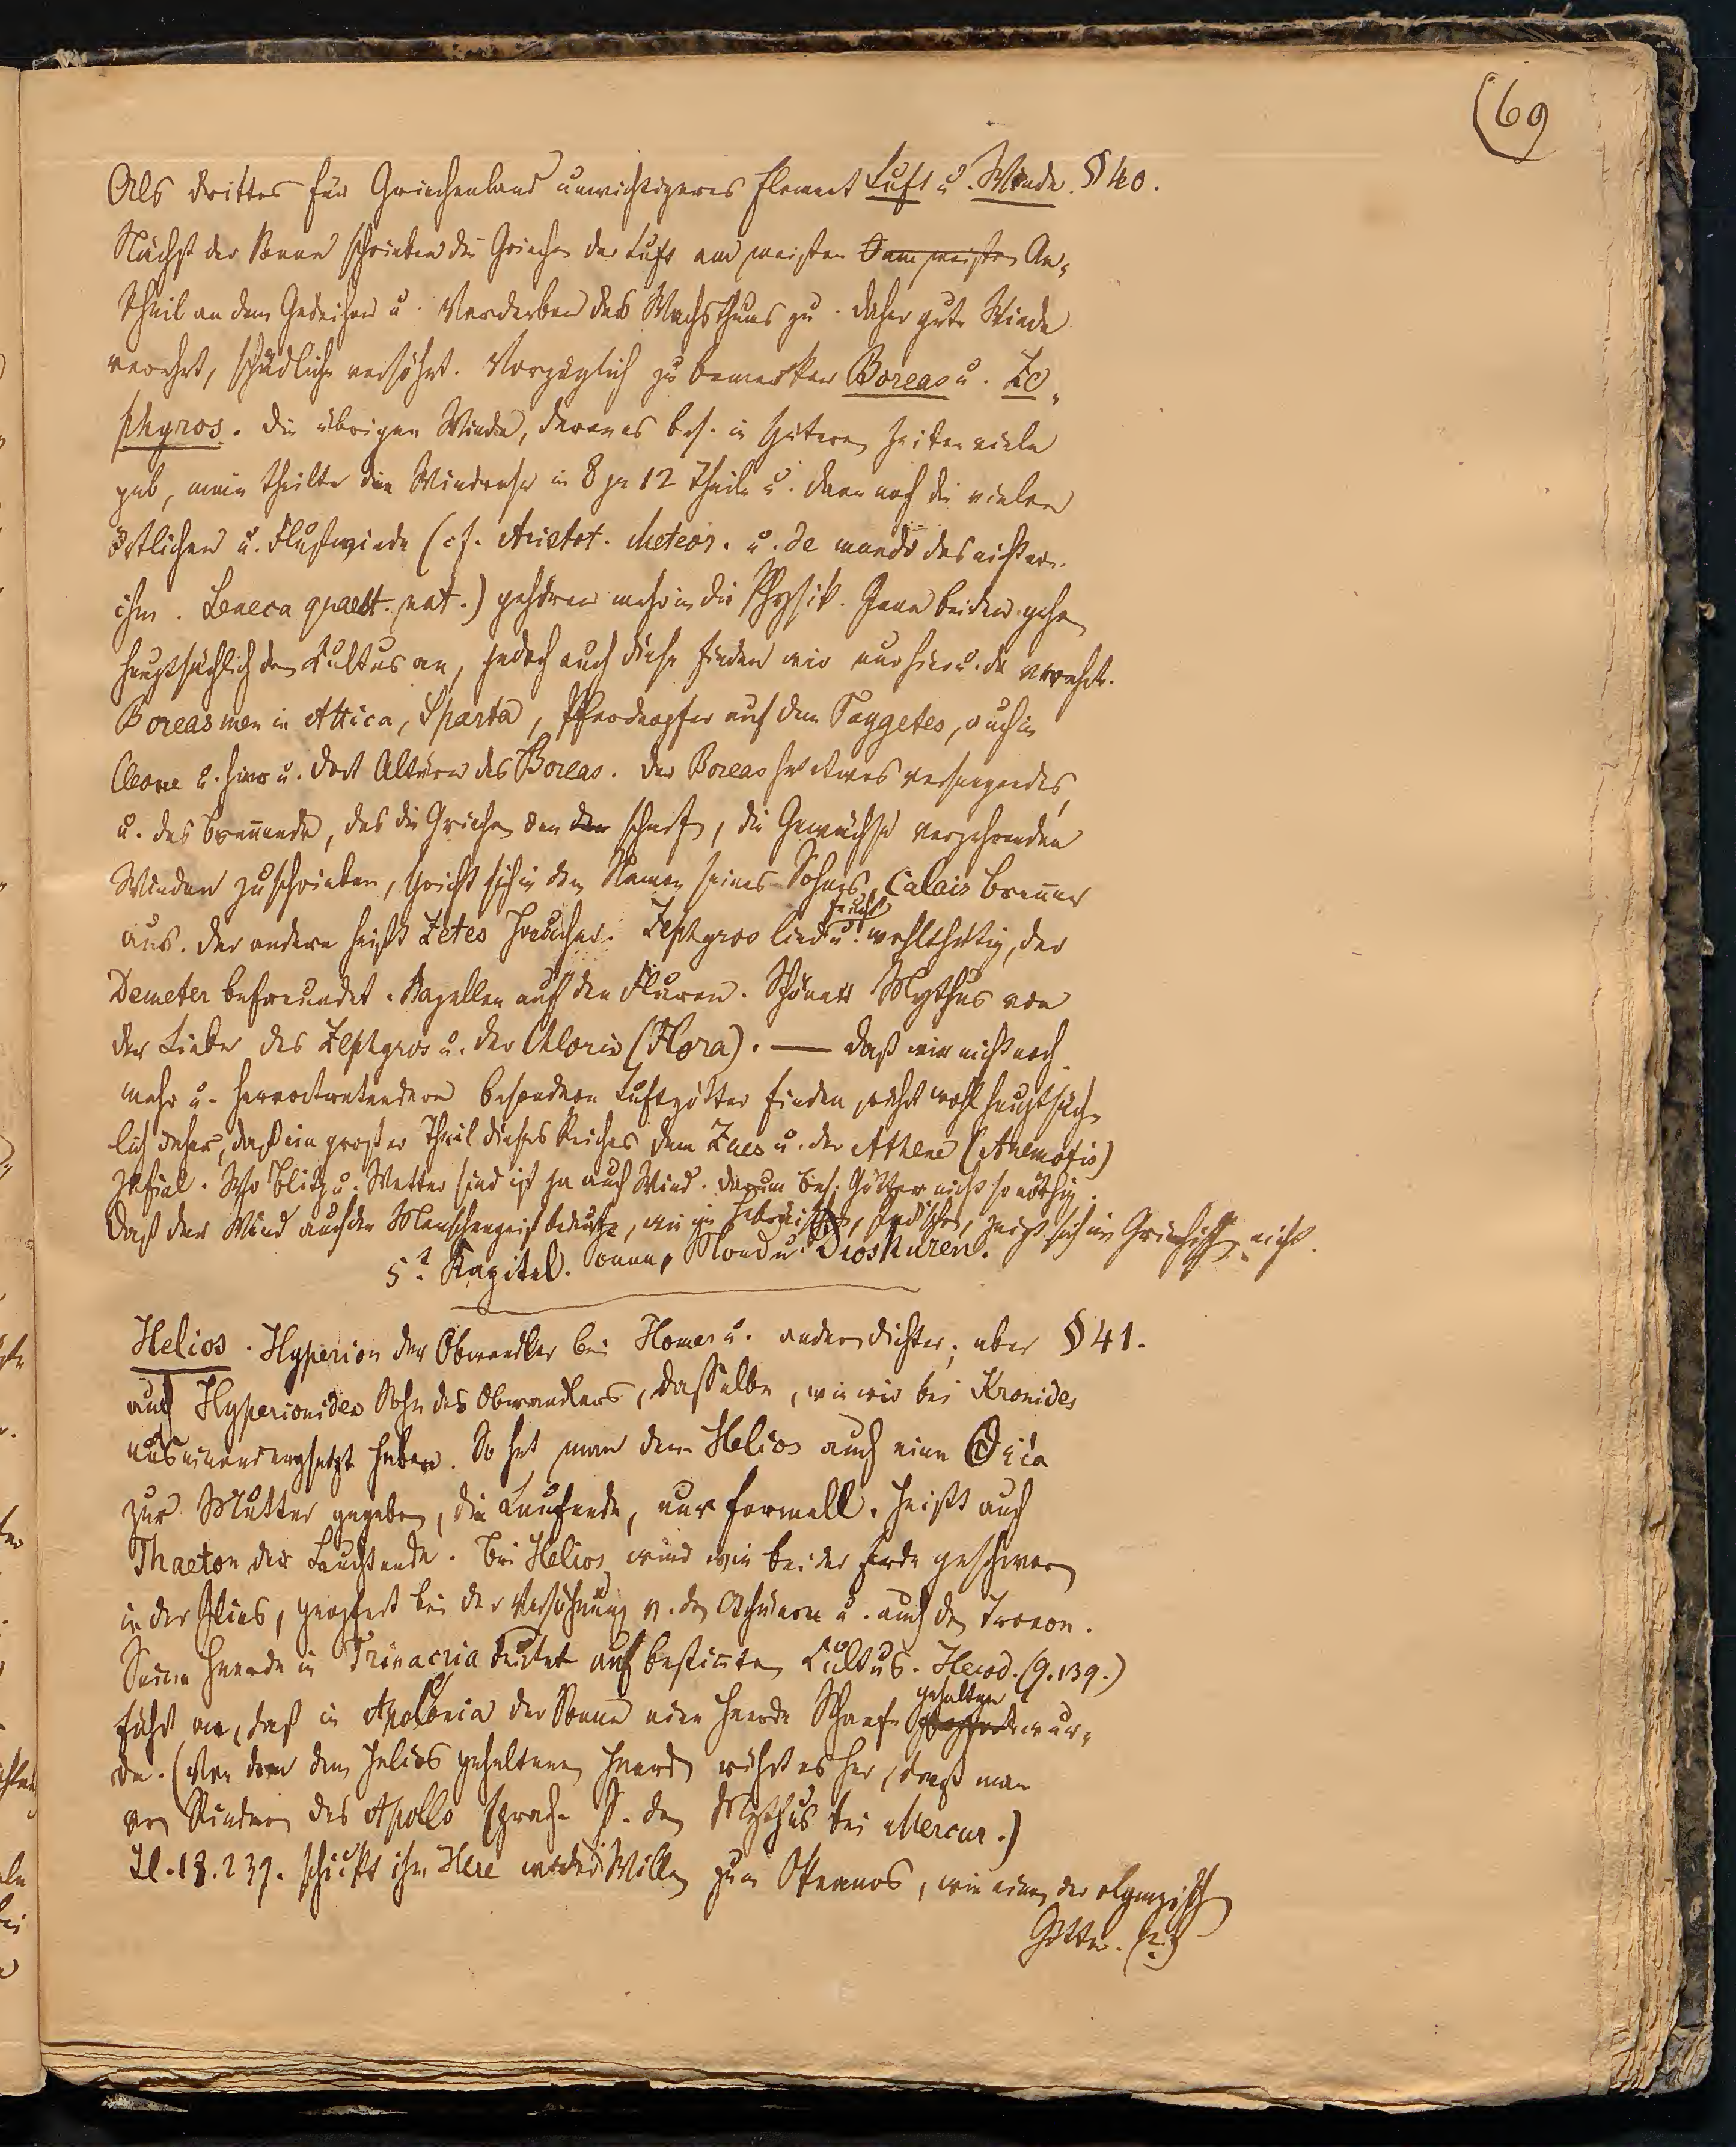 (69
Als drittes für Griechenland unwichtigeres Element Luft u. Winde. § 40.
Nächst der Sonne schrieben die Griechen der Luft am meisten An-
theil an dem Gedeihen u. Verderben des Wachsthums zu. Daher gute Winde
verehrt, schädliche versöhnt. Vorzüglich zu bemerken Boreas u. Ze-
phyros. Die übrigen Winde, deren es bes. in spätern Zeiten viele
gab, man theilte die Windrose in 8 ja 12 Theile u. dann noch die vielen
örtlichen u. Flußwinde (cf. Aristot. Meteor. u. de mundo
ihm. Seneca quaest. nat.) gehören mehr in die Physik. Jene beiden gehen
hauptsächlich den Kultus an, jedoch auch diese finden wir nur hier u. da verehrt.
Boreas in Attica, Sparta, Pferdeopfer auf dem Taygetes, auch in
Cleone u. hier u. dort Altäre des Boreas. Der Boreas hat etwas versengendes,
u. das brennende, das die Griechen den scharf, die Gewächse verzehrenden
Winden zuschrieben, spricht sich in dem Namen seines Sohnes, Calais Brenner
aus. Der andere heißt Zetes Haucher. Zephyros lind u. feucht wohlthätig, der
Demeter befreundet. Kapellen auf den Fluren. Schöner Mythus von
der Liebe des Zephyros u. der Chloris (Flora). — Daß wir nicht noch
mehr u. hervortretendere besondere Luftgötter finden, rührt wohl hauptsäch-
lich daher, daß ein großer Theil dieses Reiches dem Zeus u. der Athene (Anemotis)
zufiel. Wo Blitz u. Wetter sind ist ja auch Wind. Darum bes. Götter nicht so nöthig.
Daß der Wind auch den Menschengeist bedeute, wie im Hebräischen, Indischen, zeigt sich im Griechischen nicht.
5t. Kapitel. Sonne, Mond u. Dioskuren.
Helios. Hyperion der Oberwandler bei Homer u. andern Dichter; aber § 41.
auch Hyperionides Sohn des Oberwandlers, dasselbe, wie wir bei Kronides
auseinandergesetzt haben. So hat man dem Helios auch eine Θεία
zur Mutter gegeben, die Laufende, nur formell. Heißt auch
Phaeton der Leuchtende. Bei Helios wird wie bei der Erde geschworen
in der Ilias, geopfert bei der Versöhnung v. den Achäern u. auch den Troern.
Seine Heerde in Trinacria deutet auf bestimten Kultus. Herod. (9.139.)
führt an, daß in Apolonia der Sonne eine Heerde Schaafe gehalten wur-
de. (Von den dem Helios gehaltenen Heerden rührt es her, daß man
von Rindern des Apollo sprach. S. den Mythus bei Mercur.)
Il. 18. 239. schickt ihn Here wider Willen zum Okeanos, wie einen der olympischen
Götter. (?)